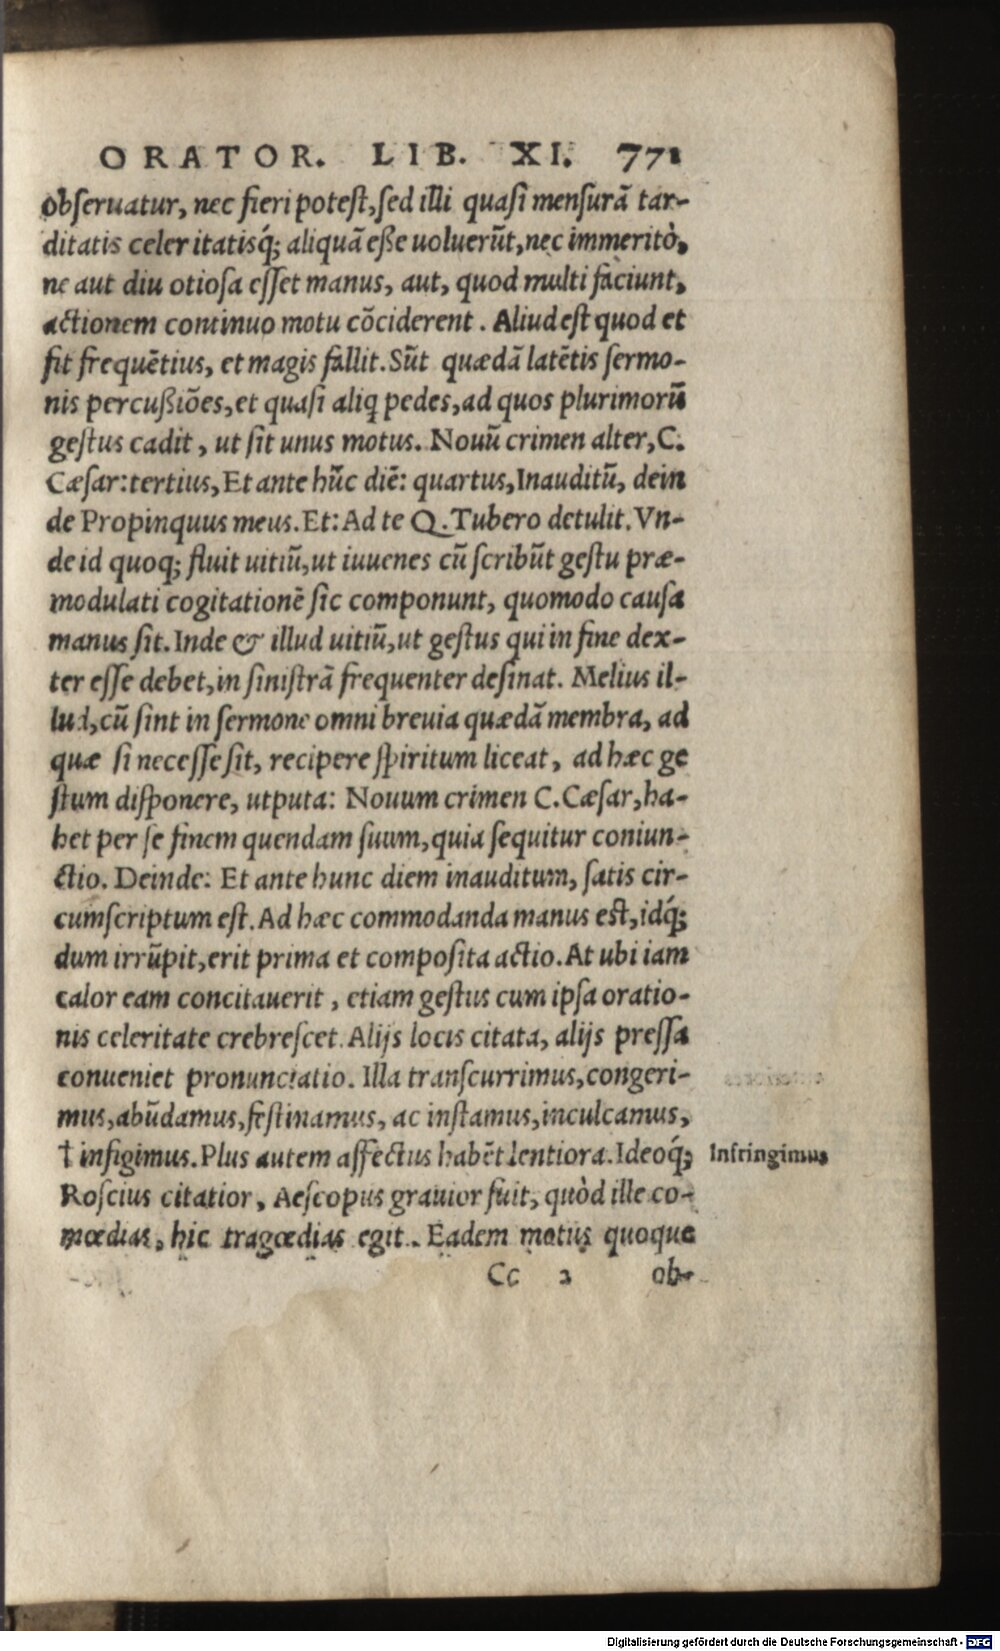 ORATOR. LIB. XI. 771
obſeruatur, nec fieri poteſt, ſed illi quaſi menſurā tar-
ditatis celeritatisq́; aliquā eſſe uoluerūt, nec immeritò,
ne aut diu otioſa eſſet manus, aut, quod multi faciunt,
actionem continuo motu cōciderent. Aliud eſt quod et
fit frequētius, et magis fallit. Sūt quædā latētis ſermo-
nis percußiōes, et quaſi aliq pedes, ad quos plurimorū
geſtus cadit, ut ſit unus motus. Nouū crimen alter, C.
Cæſar: tertius, Et ante hūc diē: quartus, Inauditū, dein
de Propinquus meus. Et: Ad te Q. Tubero detulit. Vn-
de id quoq; fluit uitiū, ut iuuenes cū ſcribūt geſtu præ-
modulati cogitationē ſic componunt, quomodo cauſa
manus ſit. Inde & illud uitiū, ut geſtus qui in fine dex-
ter eſſe debet, in ſiniſtrā frequenter deſinat. Melius il-
lud, cū ſint in ſermone omni breuia quædā membra, ad
quæ ſi neceſſe ſit, recipere ſpiritum liceat, ad hæc ge
ſtum diſponere, utputa: Nouum crimen C. Cæſar, ha-
bet per ſe finem quendam ſuum, quia ſequitur coniun-
ctio. Deinde: Et ante hunc diem inauditum, ſatis cir-
cumſcriptum eſt. Ad hæc commodanda manus eſt, idq́;
dum irrūpit, erit prima et compoſita actio. At ubi iam
calor eam concitauerit, etiam geſtus cum ipſa oratio-
nis celeritate crebreſcet. Alijs locis citata, alijs preſſa
conueniet pronunciatio. Illa tranſcurrimus, congeri-
mus, abūdamus, feſtinamus, ac inſtamus, inculcamus,
† infigimus. Plus autem affectus habēt lentiora. Ideoq́; Infringimus
Roſcius citatior, Aeſcopus grauior fuit, quòd ille co-
mœdias, hic tragœdias egit. Eadem motus quoque
Cc 2 ob-
Digitalisierung gefördert durch die Deutsche Forschungsgemeinschaft - DFG